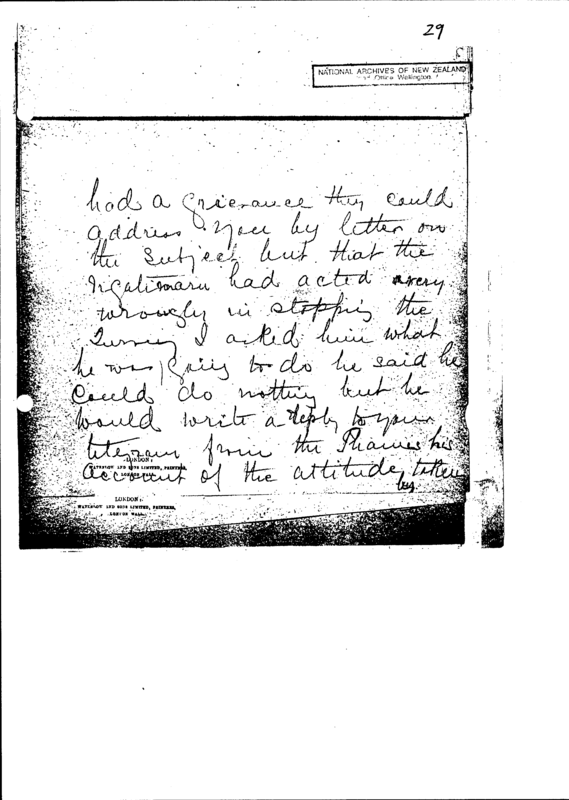 29
NATIONAL ARCHIVES OF NEW ZEALAND
Office Wellington
had a grievance they could
address you by letter on
the subject but that the
Ngatimaru had acted very
wrongly in stopping the
Survey I asked him what
he was going to do he said he
could do nothing but he
would write a reply to your
telegram from the Thames his
account of the attitude taken
by
LONDON:
WATERLOW AND SONS LIMITED, PRINTERS,
LONDON WALL.
LONDON:
WATERLOW AND SONS LIMITED, PRINTERS,
LONDON WALL.